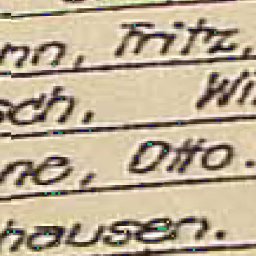 nn, Fritz,
sch. Wi
ne, Otto.
hausen.